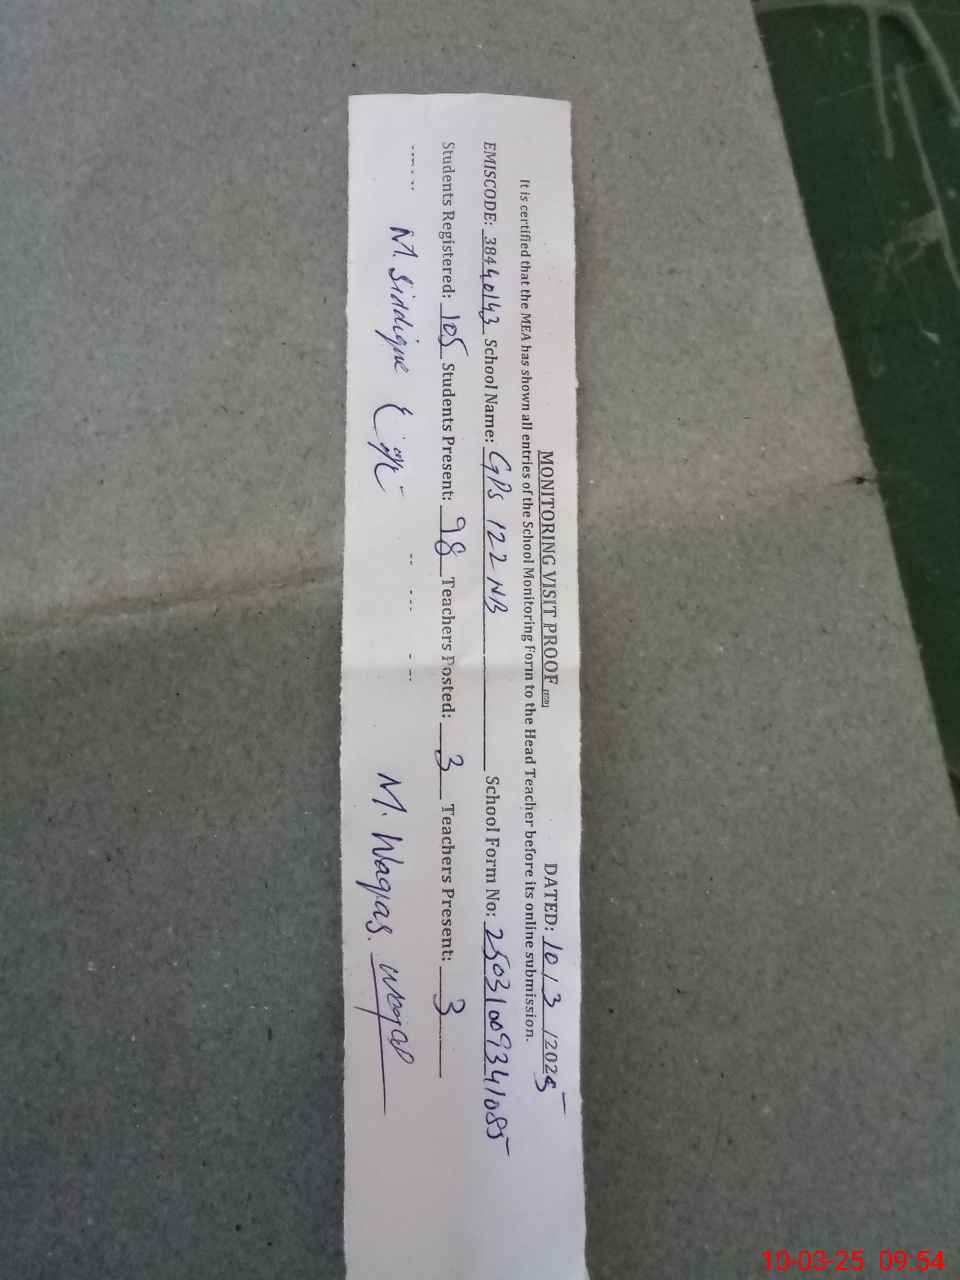 MONITORING VISIT PROOF DATED: 10 / 3 /2025
It is certified that the MEA has shown all entries of the School Monitoring Form to the Head Teacher before its online submission.
EMISCODE: 38440143 School Name: GPS 122 NB School Form No: 25031009341085
Students Registered: 105 Students Present: 98 Teachers Posted: 3 Teachers Present: 3
M. Siddique M. Waqas.
10-03-25 09:54